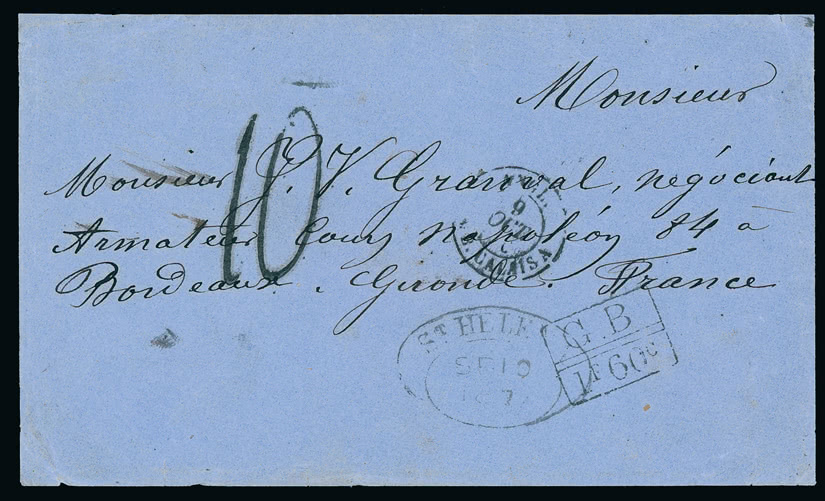 Monsieur
Monsieur J. V. Granval, négociant
Armateur Cours Napoléon 84 à
Bordeaux. Gironde. France
10
9
OCT
CALAIS A
ST HELE
SE 10
G.B
1F60c